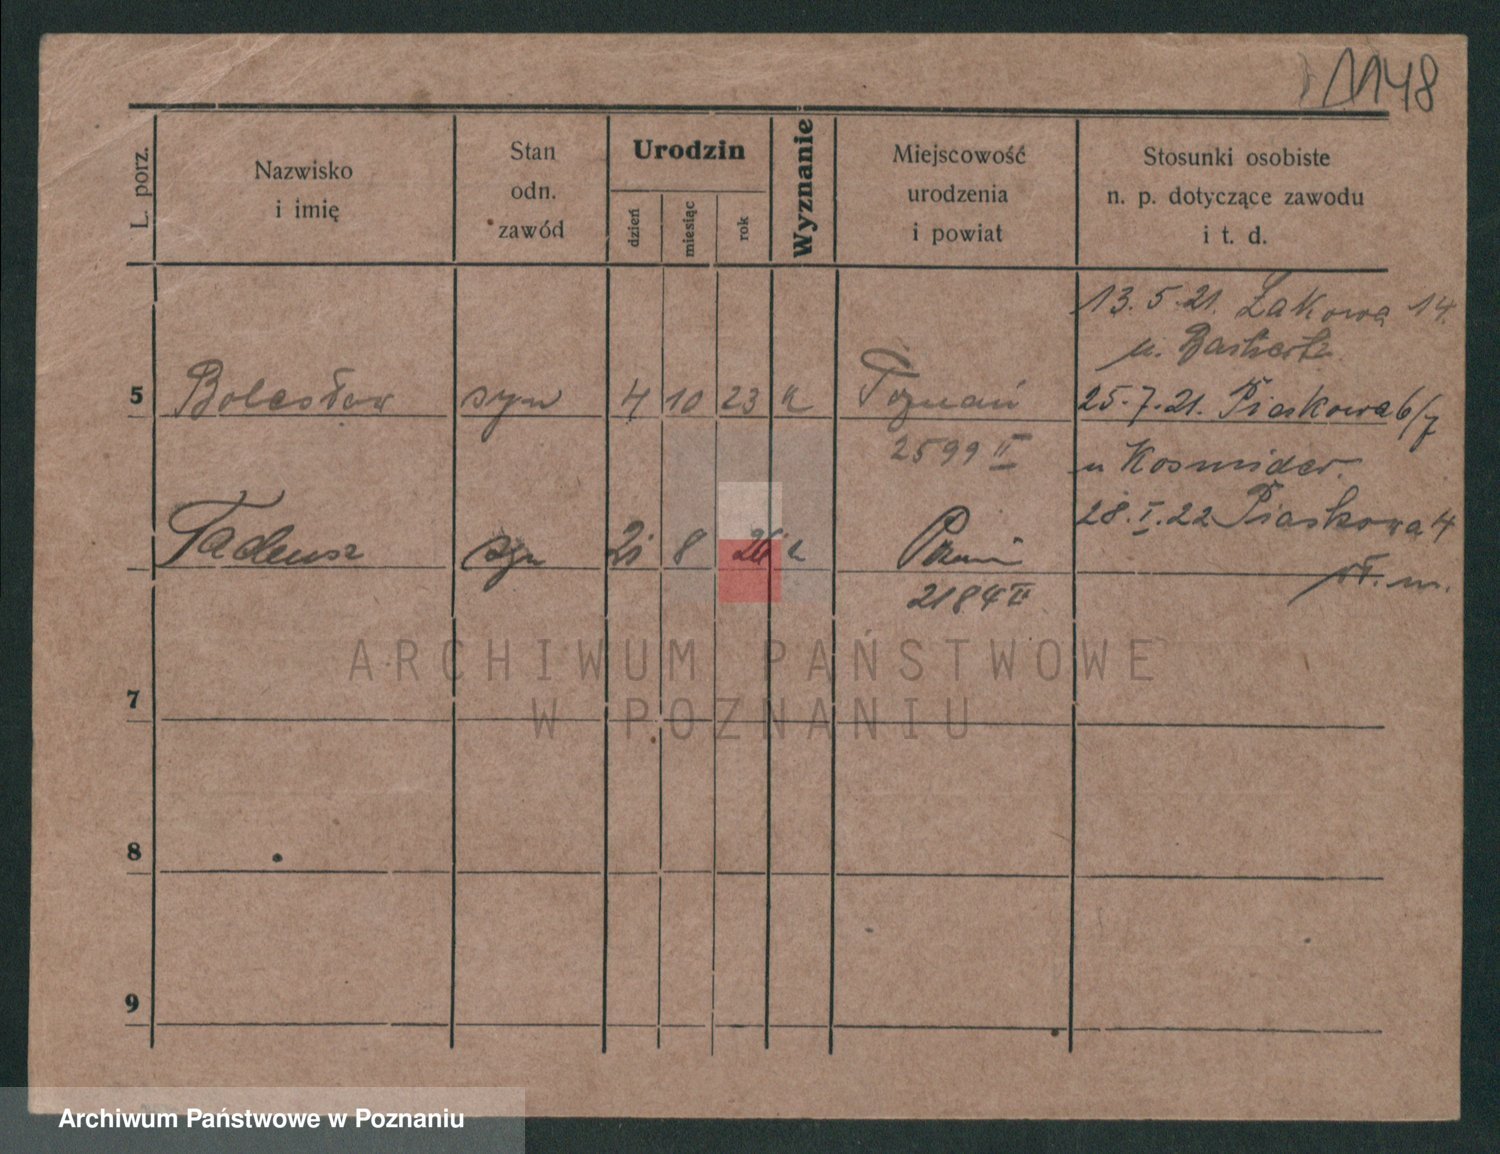 1148
L. porz.
Nazwisko
i imię
Stan
odn.
zawód
Urodzin
dzień
miesiąc
rok
Wyznanie
Miejscowość
urodzenia
i powiat
Stosunki osobiste
n. p. dotyczące zawodu
i t. d.
13. 5. 21. Łąkowa 14.
u.
5 Bolesław syn 4 10 23 k Poznań 25.7.21. Piaskowa 6/7
2599 II u Kosmider.
28. I. 22 Piaskowa 4
Tadeusz syn 21 8 26 k
2184 II
ARCHIWUM PAŃSTWOWE
7
W POZNANIU
8
9
Archiwum Państwowe w Poznaniu